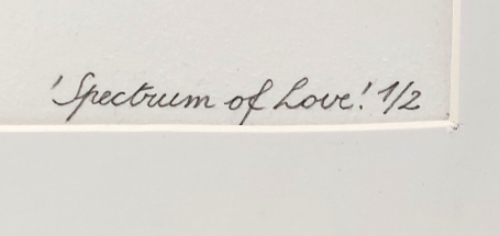 'Spectrum of Love'. 1/2